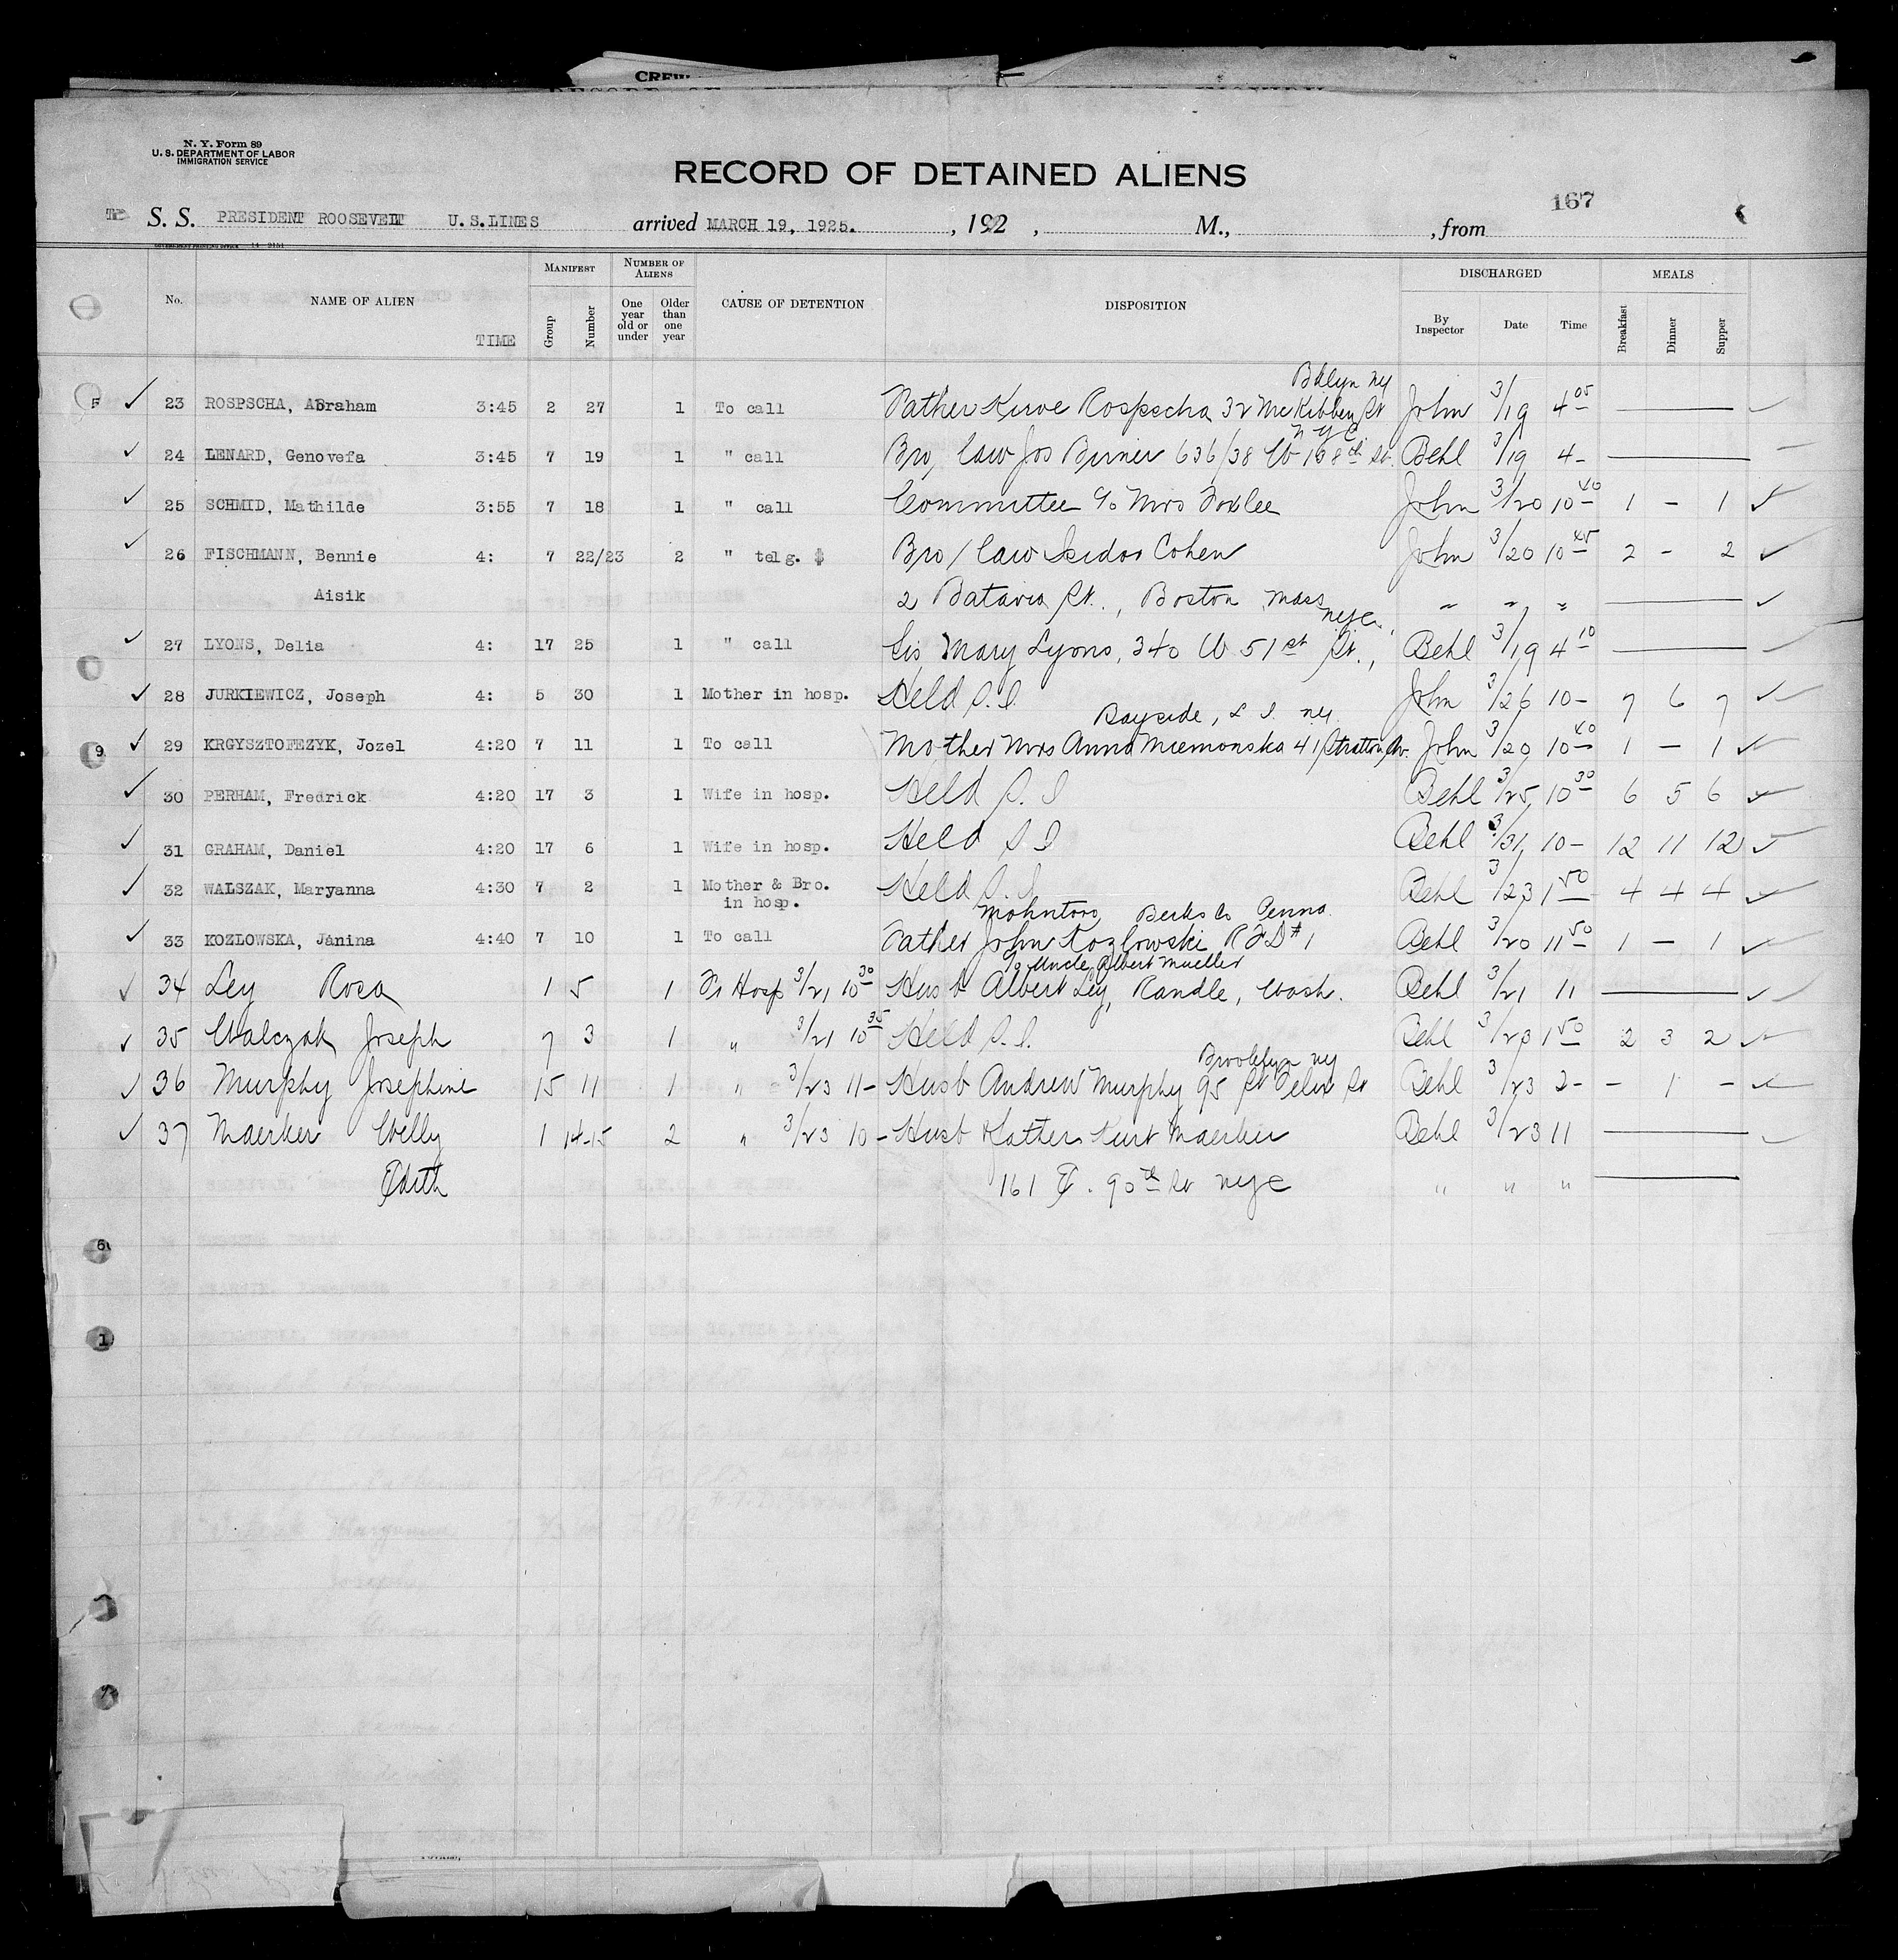 CREW
N. Y. Form 89
U. S. DEPARTMENT OF LABOR
IMMIGRATION SERVICE
RECORD OF DETAINED ALIENS
167
S. S. PRESIDENT ROOSEVELT U.S.LINES arrived MARCH 19, 1925. , 192 , M., , from
No. NAME OF ALIEN TIME MANIFEST Group Number NUMBER OF ALIENS One year old or under Older than one year CAUSE OF DETENTION DISPOSITION DISCHARGED By Inspector Date Time MEALS Breakfast Dinner Supper
Bklyn ny
23 ROSPSCHA, Abraham 3:45 2 27 1 To call Father Kurve Rospscha 32 McKibben St John 3/19 4 05
N Y C
24 LENARD, Genovefa 3:45 7 19 1 " call Bro/ law Jos Birner 636/38 W 168th St. Behl 3/19 4-
25 SCHMID, Mathilde 3:55 7 18 1 " call Committee % Mrs Foxlee John 3/20 10 40 1 - 1
26 FISCHMANN, Bennie 4: 7 22/23 2 " telg. $ Bro/ law Isidor Cohen John 3/20 10 45 2 - 2
Aisik 2 Batavia St., Boston Mass " " "
nyc.
27 LYONS, Delia 4: 17 25 1 " call Sis Mary Lyons, 340 W 51st St., Behl 3/19 4 10
28 JURKIEWICZ, Joseph 4: 5 30 1 Mother in hosp. Held S.I. John 3/26 10- 7 6 7
Bayside, L I. ny.
29 KRGYSZTOFEZYK, Jozel 4:20 7 11 1 To call Mother Mrs Anna Niemonska 41 Stratton Av. John 3/20 10 40 1 - 1
30 PERHAM, Fredrick 4:20 17 3 1 Wife in hosp. Held S. I Behl 3/25 10 30 6 5 6
31 GRAHAM, Daniel 4:20 17 6 1 Wife in hosp. Held S I Behl 3/31 10- 12 11 12
32 WALSZAK, Maryanna 4:30 7 2 1 Mother & Bro. Held S.I Behl 3/23 1 50 4 4 4
in hosp.
Mohnton, Berks Co Penna.
33 KOZLOWSKA, Janina 4:40 7 10 1 To call Father John Kozlowski R F D #1 Behl 3/20 11 50 1 - 1
% Uncle Albert Mueller
34 Ley Rosa 1 5 1 Fr Hosp 3/21 10 30 Husb Albert Ley, Randle, Wash. Behl 3/21 11
35 Walczak Joseph 7 3 1 " 3/21 10 35 Held S.I. Behl 3/23 1 50 2 3 2
Brooklyn ny
36 Murphy Josephine 15 11 1 " 3/23 11- Husb Andrew Murphy 95 St Felix St Behl 3/23 2- - 1 -
37 Maerker Welly 1 14-15 2 " 3/23 10- Husb & Father Kurt Maerker Behl 3/23 11
Edith 161 E. 90th St nyc " " "